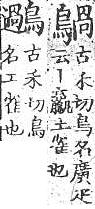 古禾切鳥名廣疋
云丨鸁土雀也
古禾切鳥
名工雀也